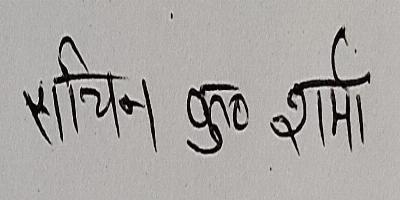 सचिन कु० शर्मा